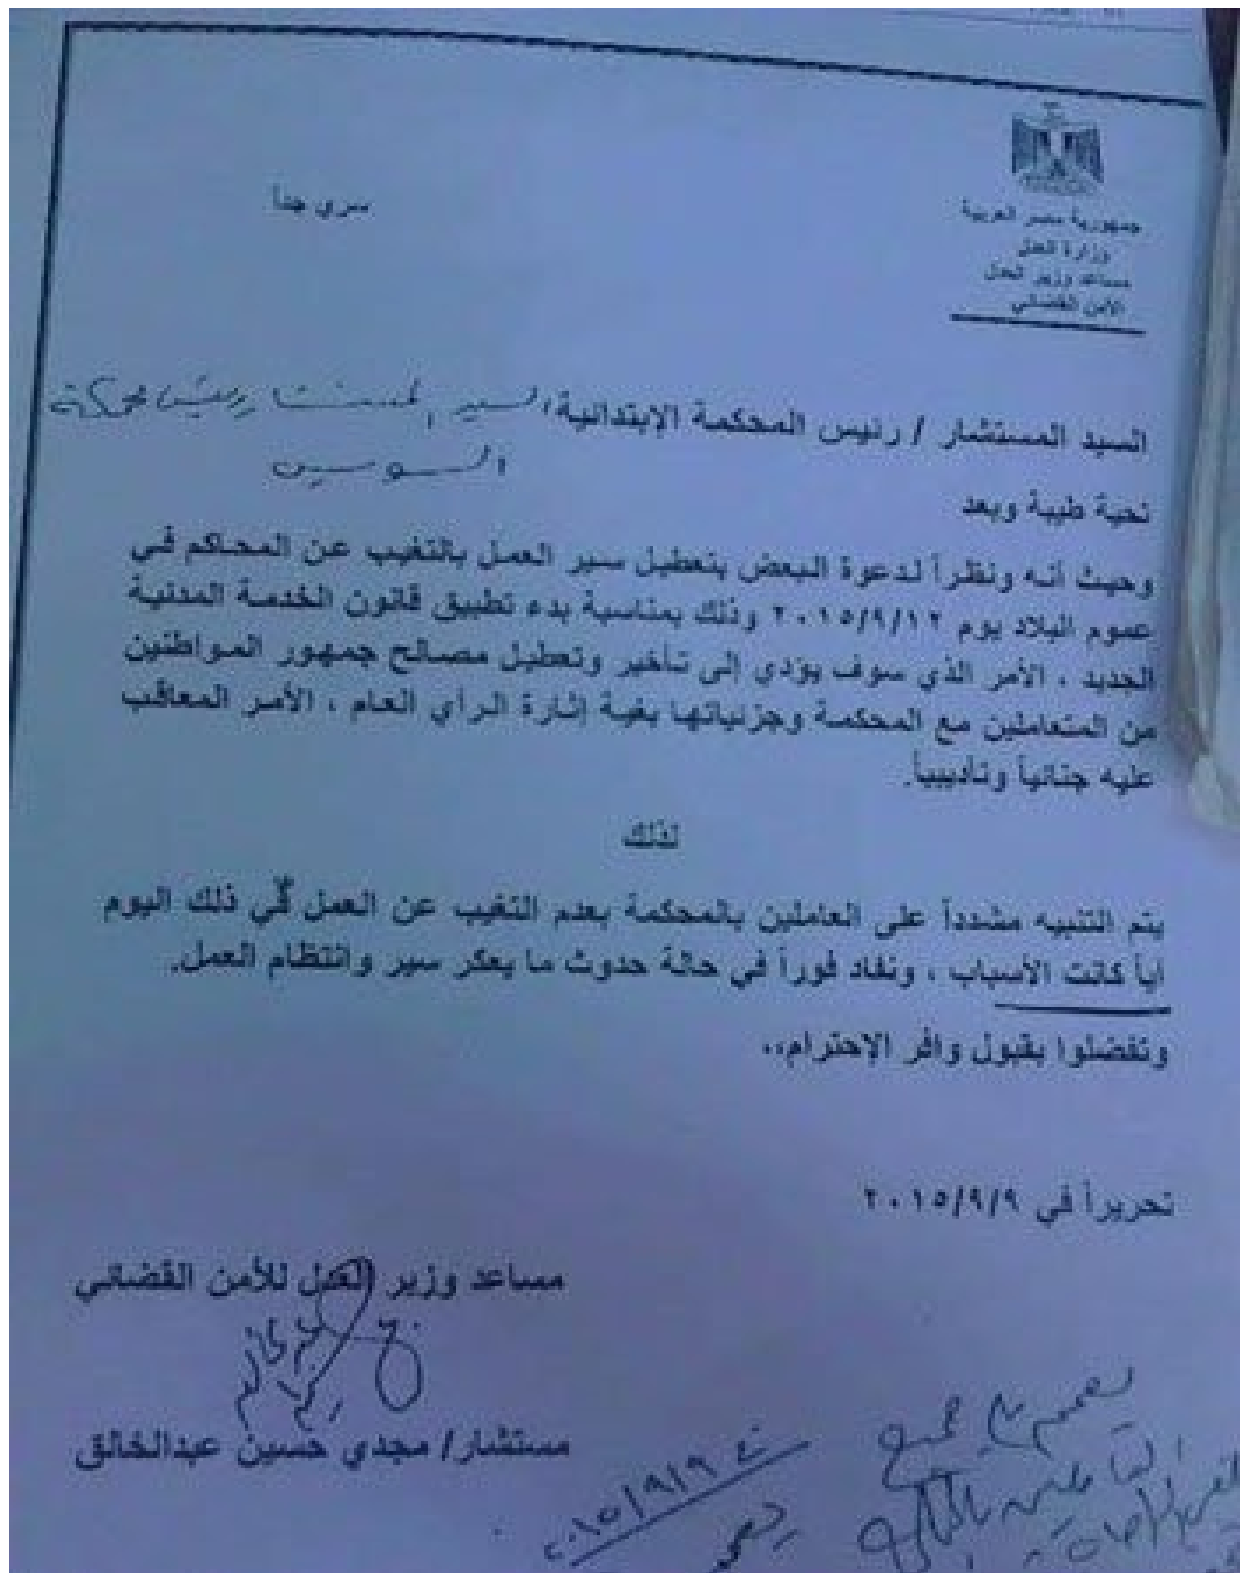 جمهورية مصر العربية
وزارة العدل
مساعد وزير العدل
الأمن القضائي
سري جداً
السيد المستشار / رئيس المحكمة الإبتدائية، السيد المستشار رئيس محكمة
السويس
تحية طيبة وبعد
وحيث أنه ونظراً لدعوة البعض بتعطيل سير العمل بالتغيب عن المحاكم في
عموم البلاد يوم ٢٠١٥/٩/١٢ وذلك بمناسبة بدء تطبيق قانون الخدمة المدنية
الجديد ، الأمر الذي سوف يؤدي إلى تأخير وتعطيل مصالح جمهور المواطنين
من المتعاملين مع المحكمة وجزئياتها بغية إثارة الرأي العام ، الأمر المعاقب
عليه جنائياً وتأديبياً.
لذلك
يتم التنبيه مشدداً على العاملين بالمحكمة بعدم التغيب عن العمل في ذلك اليوم
أياً كانت الأسباب ، ونفاد فوراً في حالة حدوث ما يعكر سير وانتظام العمل.
وتفضلوا بقبول وافر الإحترام،،
تحريراً في ٢٠١٥/٩/٩
مساعد وزير العدل للأمن القضائي
مستشار/ مجدي حسين عبدالخالق
يعمم على جميع
العاملين بالمحكمة
٢٠١٥/٩/٩